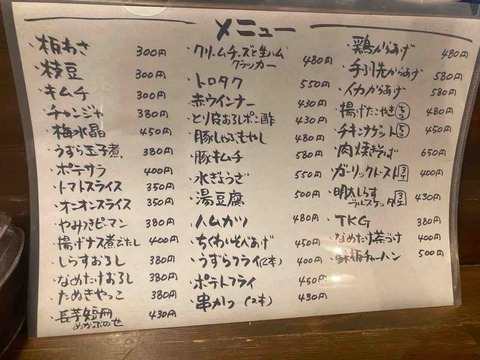 メニュー
・板わさ 300円
・枝豆 300円
・キムチ 300円
・チャンジャ 380円
・梅水晶 450円
・うずら玉子煮 380円
・ポテサラ 400円
・トマトスライス 350円
・オニオンスライス 350円
・やみつきピーマン 380円
・揚げナス煮びたし 400円
・しらすおろし 380円
・なめたけおろし 380円
・たぬきやっこ 380円
・長芋短冊 めかぶのせ 430円
・クリームチーズと生ハム
クラッカー 480円
・トロタク 550円
・赤ウインナー 430円
・とり皮おろしポン酢 430円
・豚しゃぶもやし 480円
・豚キムチ 580円
・水ぎょうざ 550円
・湯豆腐 500円
・ハムカツ 480円
・ちくわいそべあげ 450円
・うずらフライ(2本) 400円
・ポテトフライ 450円
・串かつ(2本) 430円
・鶏からあげ 480円
・手羽先からあげ 580円
・イカからあげ 580円
・揚げたこやき 450円
・チキンナゲット 450円
・肉焼きそば 650円
・ガーリックトースト 400円
・明太しらす
ブルスケッタ 430円
・TKG 380円
・なめたけ茶づけ 400円
チャーハン 500円